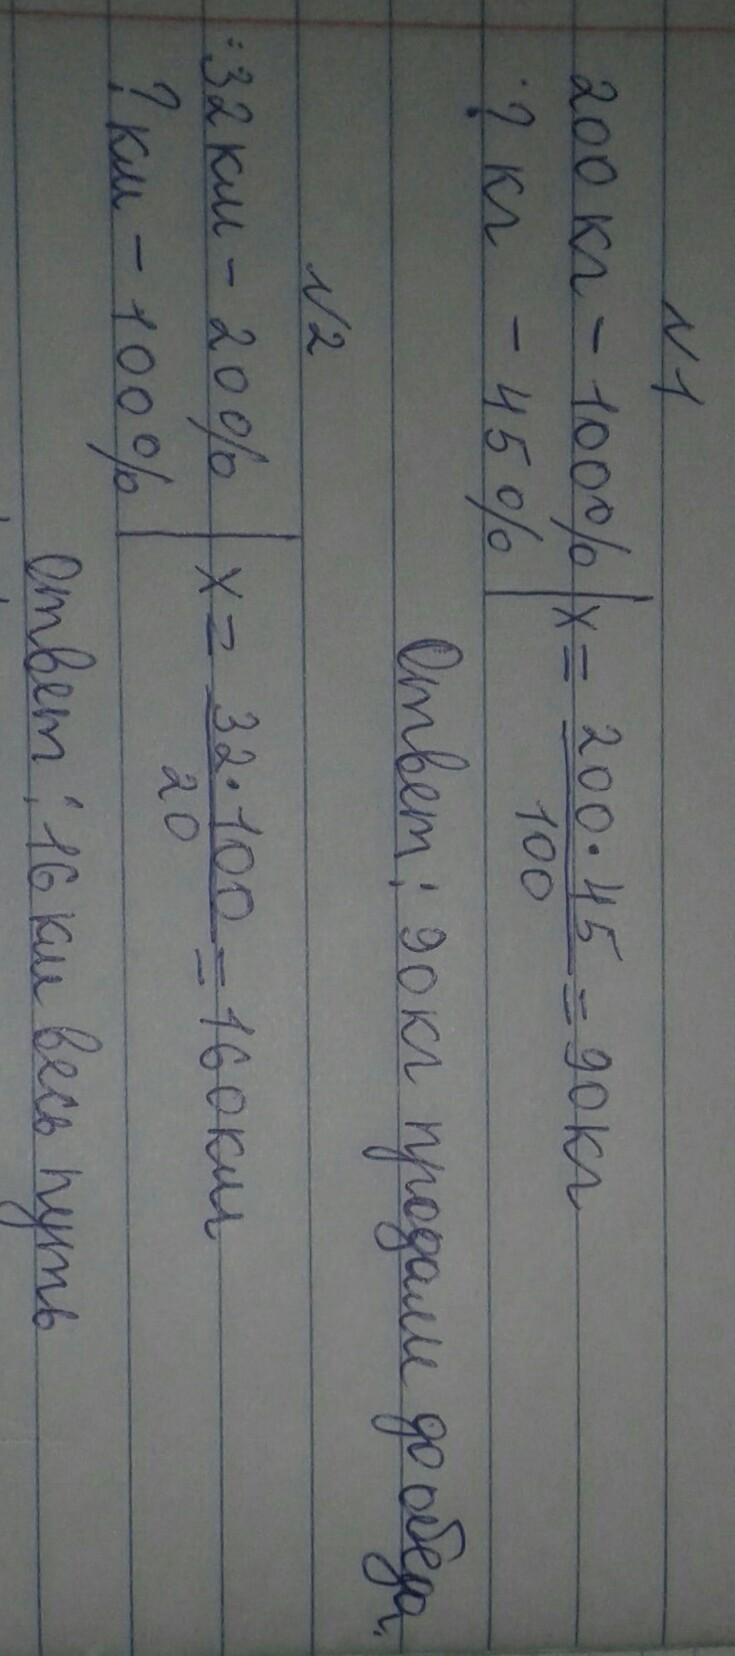 №1
200 кг - 100% | x = 200·45 / 100 = 90 кг
? кг - 45%
Ответ: 90 кг продали до обеда.
№2
32 км - 20% | x = 32·100 / 20 = 160 км
? км - 100%
Ответ: 16 км весь путь